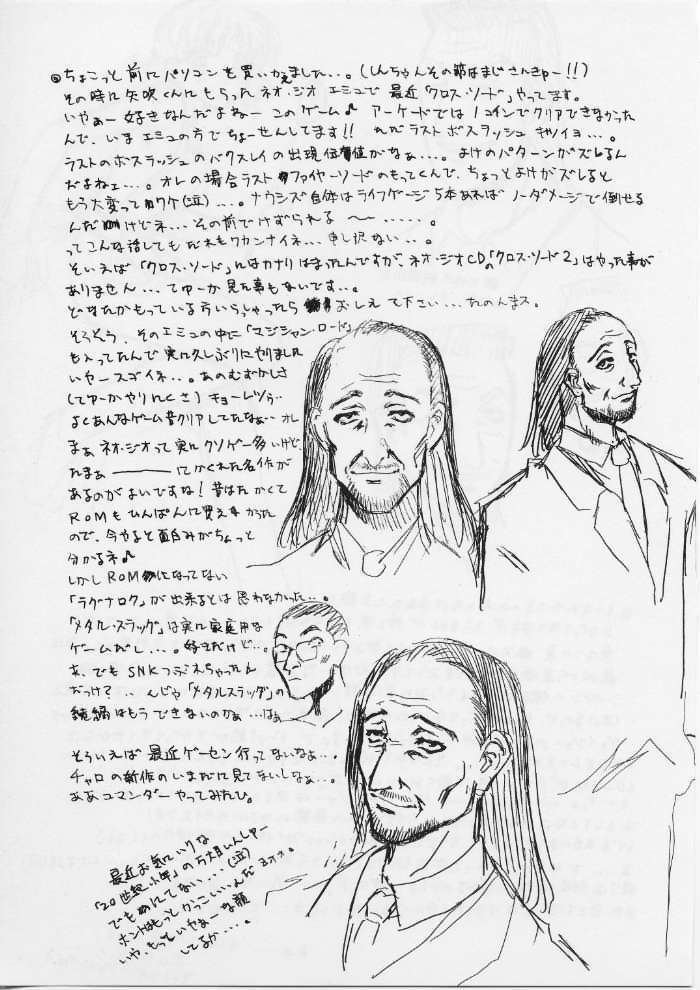 ◎ちょこっと前にパソコンを買いかえました…。(しんちゃんその節はまじさんきゅー!!)
その時に矢吹くんにもらったネオ・ジオエミュで最近「クロス・ソード」やってます。
いやぁー好きなんだよねーこのゲーム♪ アーケードでは1コインでクリアできなかった
んで、いまエミュの方でちょーせんしてます!! ただラストボスラッシュキツイヨ…。
ラストのボスラッシュのバクスレイの出現位置がなぁ…。よけのパターンがズレるん
だよねェ…。オレの場合ラストファイヤーソードのもってくんで、ちょっとよけがズレると
もう大変ってワケ(泣)…。ナウシズ自体はライフゲージ5本あればノーダメージで倒せる
んだけどネ…その前でけずられる〜……。
ってこんな話してもだれもワカンナイネ…申し訳ない…。
そいえば「クロス・ソード」にはカナリはまったんですが、ネオ・ジオCDの「クロス・ソード2」はやった事が
ありません…てゆーか見た事もないです…。
どなたかもっている方いらっしゃったらおしえて下さい…たのんます。
そろそろ、そのエミュの中に「マジシャン・ロード」
も入ってたんで実に久しぶりにやりました
いやースゴイネ…。あのむずかしさ
(てゆーかやりにくさ)キョーレツぅ…
よくあんなゲーム昔クリアしてたなぁ…オレ
まぁネオ・ジオって実にクソゲー多いけど
たまぁーーーにかくれた名作が
あるのがよいですね!昔はたかくて
ROMもひんぱんに買えなかった
ので、今やると面白みがちょっと
分かるネ♪
しかしROMになってない
「ラグナロク」が出来るとは思わなかった…。
「メタル・スラッグ」は実に家庭用な
ゲームだし…。好きだけど…。
あ、でもSNKつぶれちゃったん
だっけ?…んじゃ「メタルスラッグ」の
続編はもうできないのかぁ…はぁ
そういえば最近ゲーセン行ってないなぁ…。
チャロの新作のいまだに見てないしなぁ…。
ああコマンダーやってみたひ。
最近お気にいりな
「20世紀少年」の万丈目しんしゅー
でもにてない…(泣)
ホントはもっとかっこいいんだヨォォ。
いや、もっといやぁーな顔
してるか…。